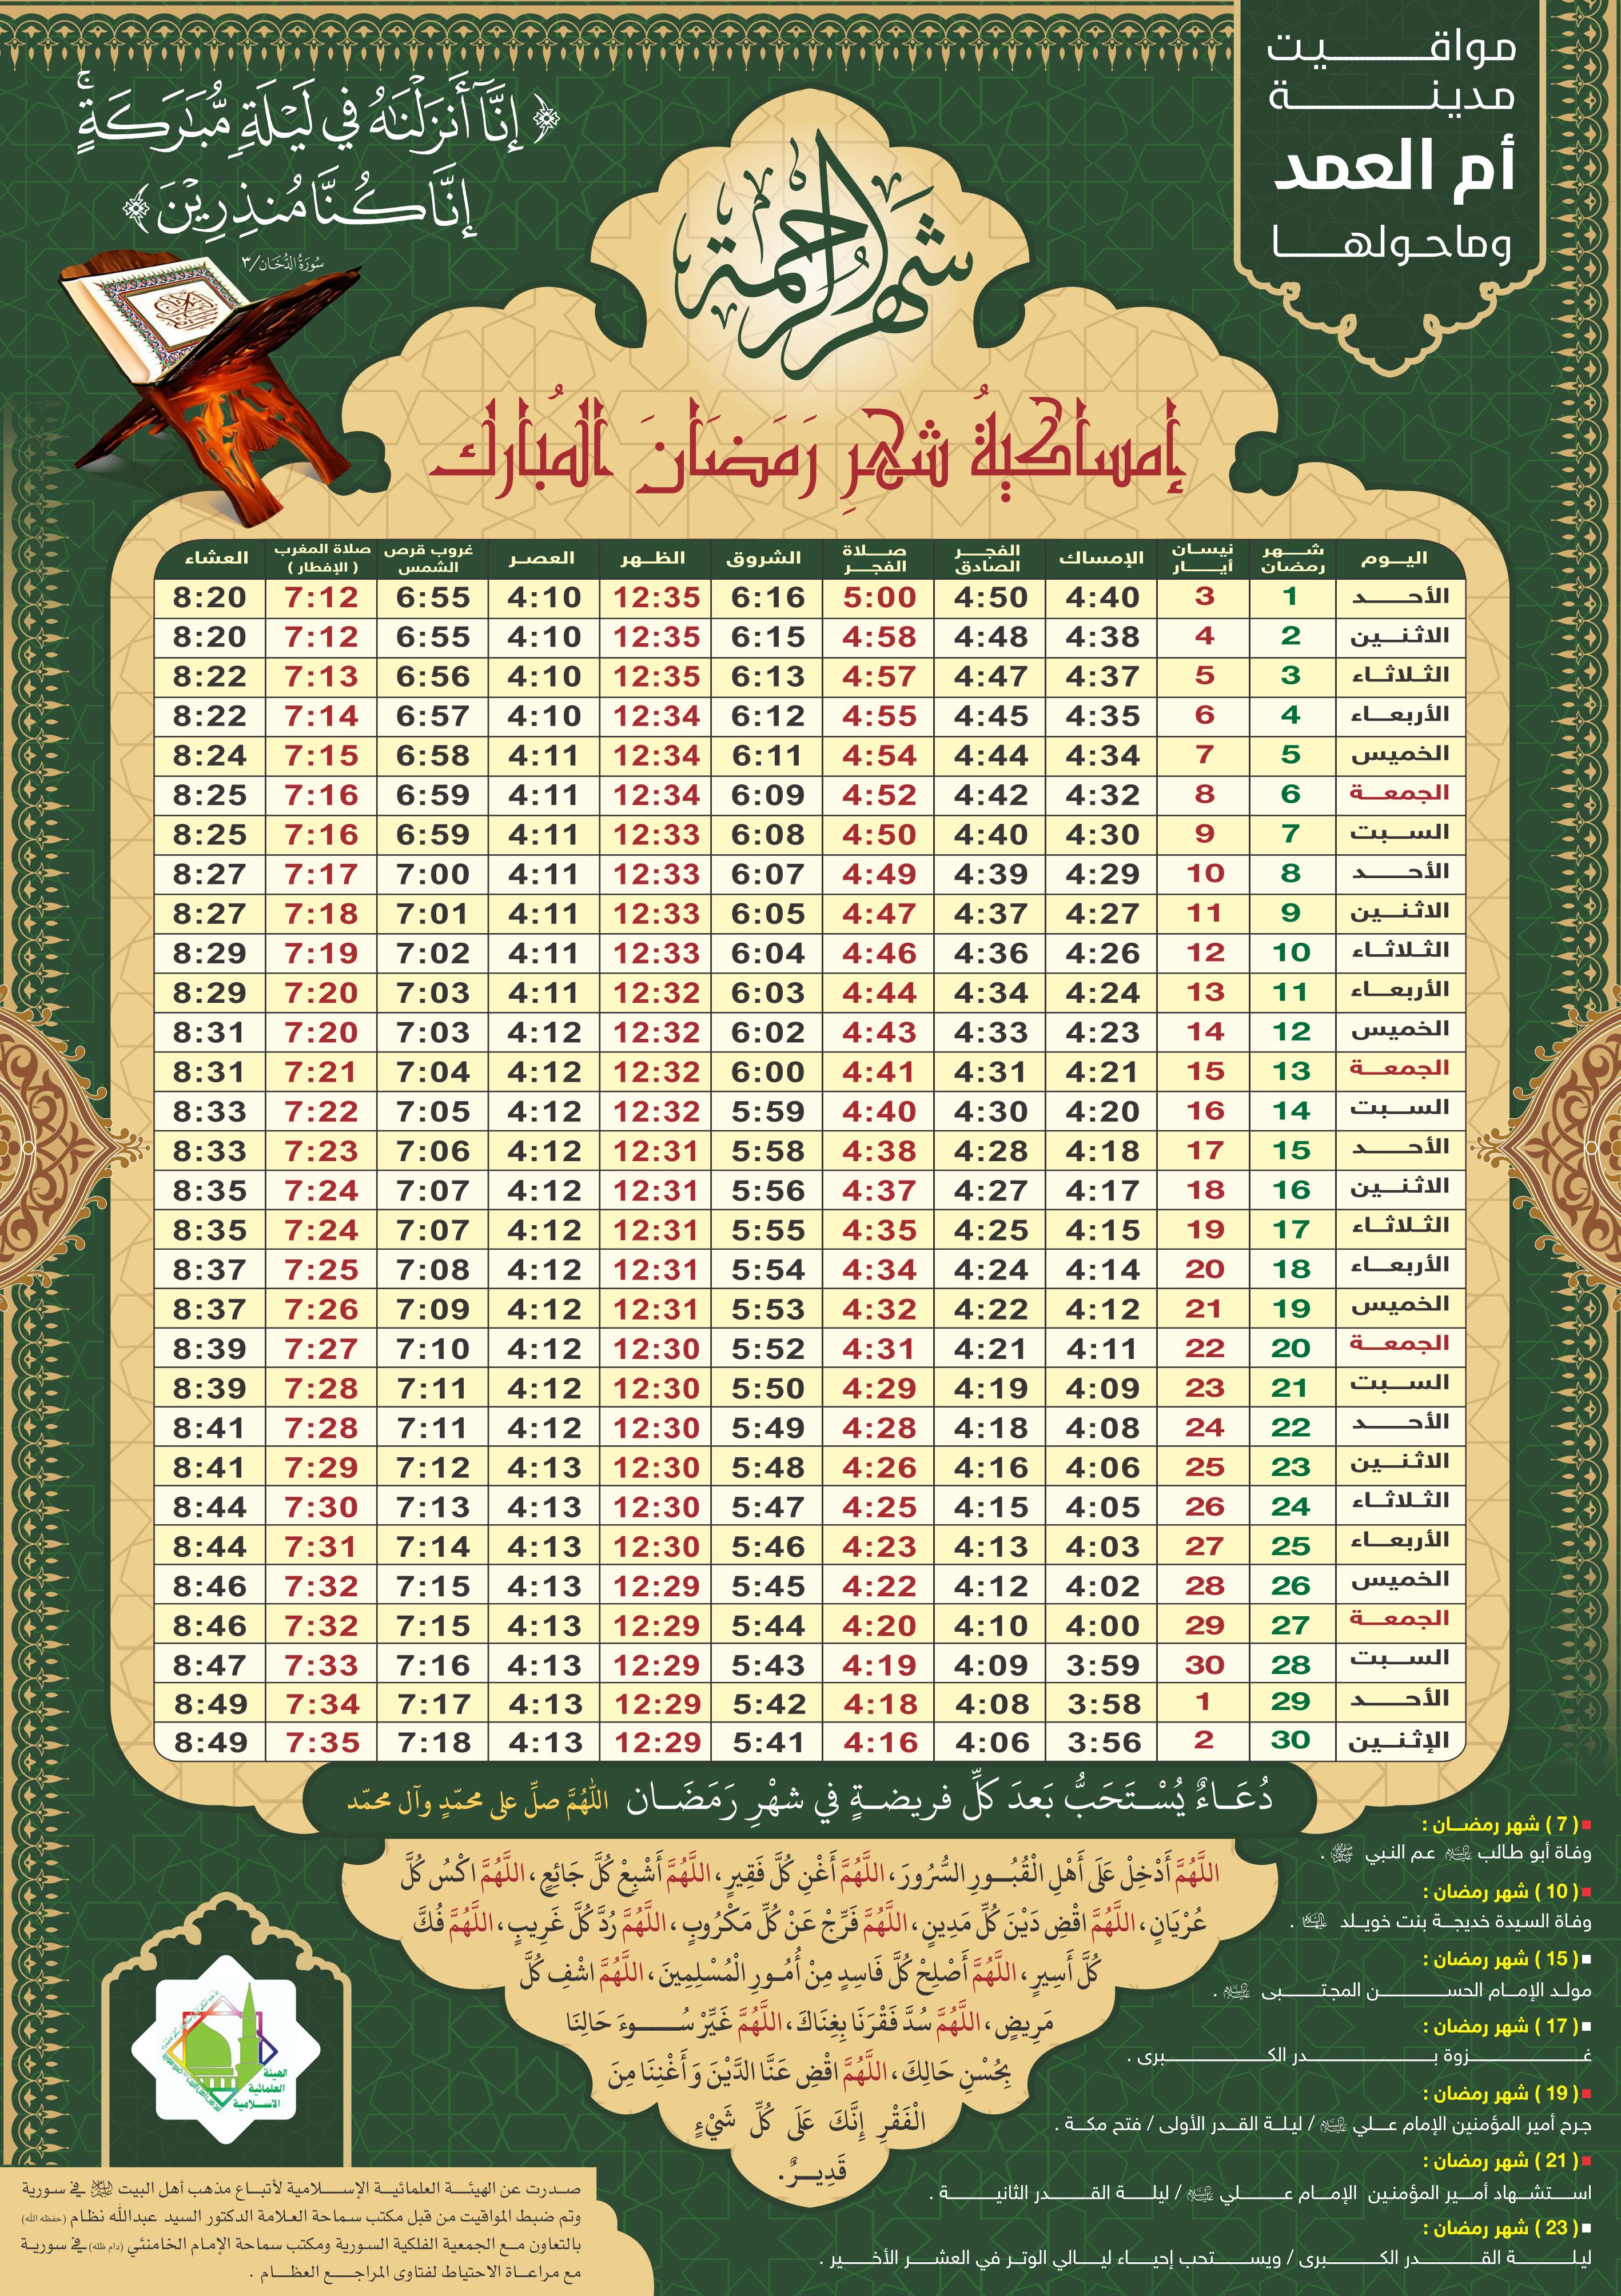 مواقيت
مدينة
أم العمد
وماحولها
﴿ إِنَّا أَنزَلْنَاهُ فِي لَيْلَةٍ مُّبَارَكَةٍ ۚ
إِنَّا كُنَّا مُنذِرِينَ ﴾
سُورَةُ الدُّخَان/٣
شهر الرحمة
إمساكيةُ شهرِ رَمَضَانَ المُبارك
اليوم شهر رمضان نيسان أيار الإمساك الفجر الصادق صلاة الفجر الشروق الظهر العصر غروب قرص الشمس صلاة المغرب ( الإفطار ) العشاء
الأحد 1 3 4:40 4:50 5:00 6:16 12:35 4:10 6:55 7:12 8:20
الاثنين 2 4 4:38 4:48 4:58 6:15 12:35 4:10 6:55 7:12 8:20
الثلاثاء 3 5 4:37 4:47 4:57 6:13 12:35 4:10 6:56 7:13 8:22
الأربعاء 4 6 4:35 4:45 4:55 6:12 12:34 4:10 6:57 7:14 8:22
الخميس 5 7 4:34 4:44 4:54 6:11 12:34 4:11 6:58 7:15 8:24
الجمعة 6 8 4:32 4:42 4:52 6:09 12:34 4:11 6:59 7:16 8:25
السبت 7 9 4:30 4:40 4:50 6:08 12:33 4:11 6:59 7:16 8:25
الأحد 8 10 4:29 4:39 4:49 6:07 12:33 4:11 7:00 7:17 8:27
الاثنين 9 11 4:27 4:37 4:47 6:05 12:33 4:11 7:01 7:18 8:27
الثلاثاء 10 12 4:26 4:36 4:46 6:04 12:33 4:11 7:02 7:19 8:29
الأربعاء 11 13 4:24 4:34 4:44 6:03 12:32 4:11 7:03 7:20 8:29
الخميس 12 14 4:23 4:33 4:43 6:02 12:32 4:12 7:03 7:20 8:31
الجمعة 13 15 4:21 4:31 4:41 6:00 12:32 4:12 7:04 7:21 8:31
السبت 14 16 4:20 4:30 4:40 5:59 12:32 4:12 7:05 7:22 8:33
الأحد 15 17 4:18 4:28 4:38 5:58 12:31 4:12 7:06 7:23 8:33
الاثنين 16 18 4:17 4:27 4:37 5:56 12:31 4:12 7:07 7:24 8:35
الثلاثاء 17 19 4:15 4:25 4:35 5:55 12:31 4:12 7:07 7:24 8:35
الأربعاء 18 20 4:14 4:24 4:34 5:54 12:31 4:12 7:08 7:25 8:37
الخميس 19 21 4:12 4:22 4:32 5:53 12:31 4:12 7:09 7:26 8:37
الجمعة 20 22 4:11 4:21 4:31 5:52 12:30 4:12 7:10 7:27 8:39
السبت 21 23 4:09 4:19 4:29 5:50 12:30 4:12 7:11 7:28 8:39
الأحد 22 24 4:08 4:18 4:28 5:49 12:30 4:12 7:11 7:28 8:41
الاثنين 23 25 4:06 4:16 4:26 5:48 12:30 4:13 7:12 7:29 8:41
الثلاثاء 24 26 4:05 4:15 4:25 5:47 12:30 4:13 7:13 7:30 8:44
الأربعاء 25 27 4:03 4:13 4:23 5:46 12:30 4:13 7:14 7:31 8:44
الخميس 26 28 4:02 4:12 4:22 5:45 12:29 4:13 7:15 7:32 8:46
الجمعة 27 29 4:00 4:10 4:20 5:44 12:29 4:13 7:15 7:32 8:46
السبت 28 30 3:59 4:09 4:19 5:43 12:29 4:13 7:16 7:33 8:47
الأحد 29 1 3:58 4:08 4:18 5:42 12:29 4:13 7:17 7:34 8:49
الإثنين 30 2 3:56 4:06 4:16 5:41 12:29 4:13 7:18 7:35 8:49
دُعَاءٌ يُسْتَحَبُّ بَعدَ كلِّ فريضةٍ في شهْرِ رَمَضَان اللهُمَّ صلِّ على محمّدٍ وآل محمّد
اللَّهُمَّ أَدْخِلْ عَلَى أَهْلِ الْقُبُورِ السُّرُورَ، اللَّهُمَّ أَغْنِ كُلَّ فَقِيرٍ، اللَّهُمَّ أَشْبِعْ كُلَّ جَائِعٍ، اللَّهُمَّ اكْسُ كُلَّ
عُرْيَانٍ، اللَّهُمَّ اقْضِ دَيْنَ كُلِّ مَدِينٍ، اللَّهُمَّ فَرِّجْ عَنْ كُلِّ مَكْرُوبٍ، اللَّهُمَّ رُدَّ كُلَّ غَرِيبٍ، اللَّهُمَّ فُكَّ
كُلَّ أَسِيرٍ، اللَّهُمَّ أَصْلِحْ كُلَّ فَاسِدٍ مِنْ أُمُورِ الْمُسْلِمِينَ، اللَّهُمَّ اشْفِ كُلَّ
مَرِيضٍ، اللَّهُمَّ سُدَّ فَقْرَنَا بِغِنَاكَ، اللَّهُمَّ غَيِّرْ سُوءَ حَالِنَا
بِحُسْنِ حَالِكَ، اللَّهُمَّ اقْضِ عَنَّا الدَّيْنَ وَأَغْنِنَا مِنَ
الْفَقْرِ إِنَّكَ عَلَى كُلِّ شَيْءٍ
قَدِيرٌ.
( 7 ) شهر رمضان :
وفاة أبو طالب عليه السلام عم النبي ﷺ .
( 10 ) شهر رمضان :
وفاة السيدة خديجة بنت خويلد عليها السلام .
( 15 ) شهر رمضان :
مولد الإمام الحسن المجتبى عليه السلام .
( 17 ) شهر رمضان :
غزوة بدر الكبرى .
( 19 ) شهر رمضان :
جرح أمير المؤمنين الإمام علي عليه السلام / ليلة القدر الأولى / فتح مكة .
( 21 ) شهر رمضان :
استشهاد أمير المؤمنين الإمام علي عليه السلام / ليلة القدر الثانية .
( 23 ) شهر رمضان :
ليلة القدر الكبرى / ويستحب إحياء ليالي الوتر في العشر الأخير .
الهيئة
العلمائية
الاسلامية
صدرت عن الهيئة العلمائية الإسلامية لأتباع مذهب أهل البيت عليهم السلام في سورية
وتم ضبط المواقيت من قبل مكتب سماحة العلامة الدكتور السيد عبدالله نظام (حفظه الله)
بالتعاون مع الجمعية الفلكية السورية ومكتب سماحة الإمام الخامنئي (دام ظله) في سورية
مع مراعاة الاحتياط لفتاوى المراجع العظام .